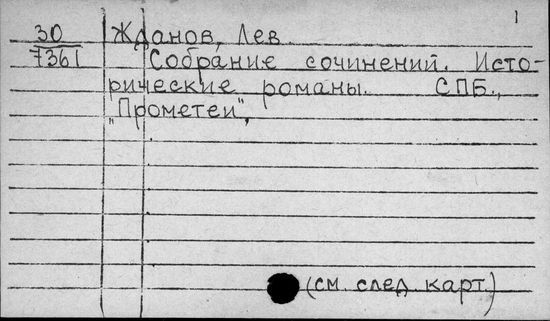 1
30 Жданов, Лев.
7361 Собрание сочинений. Исто-
рические романы. СПБ.,
„Прометей",
(см. след. карт.)